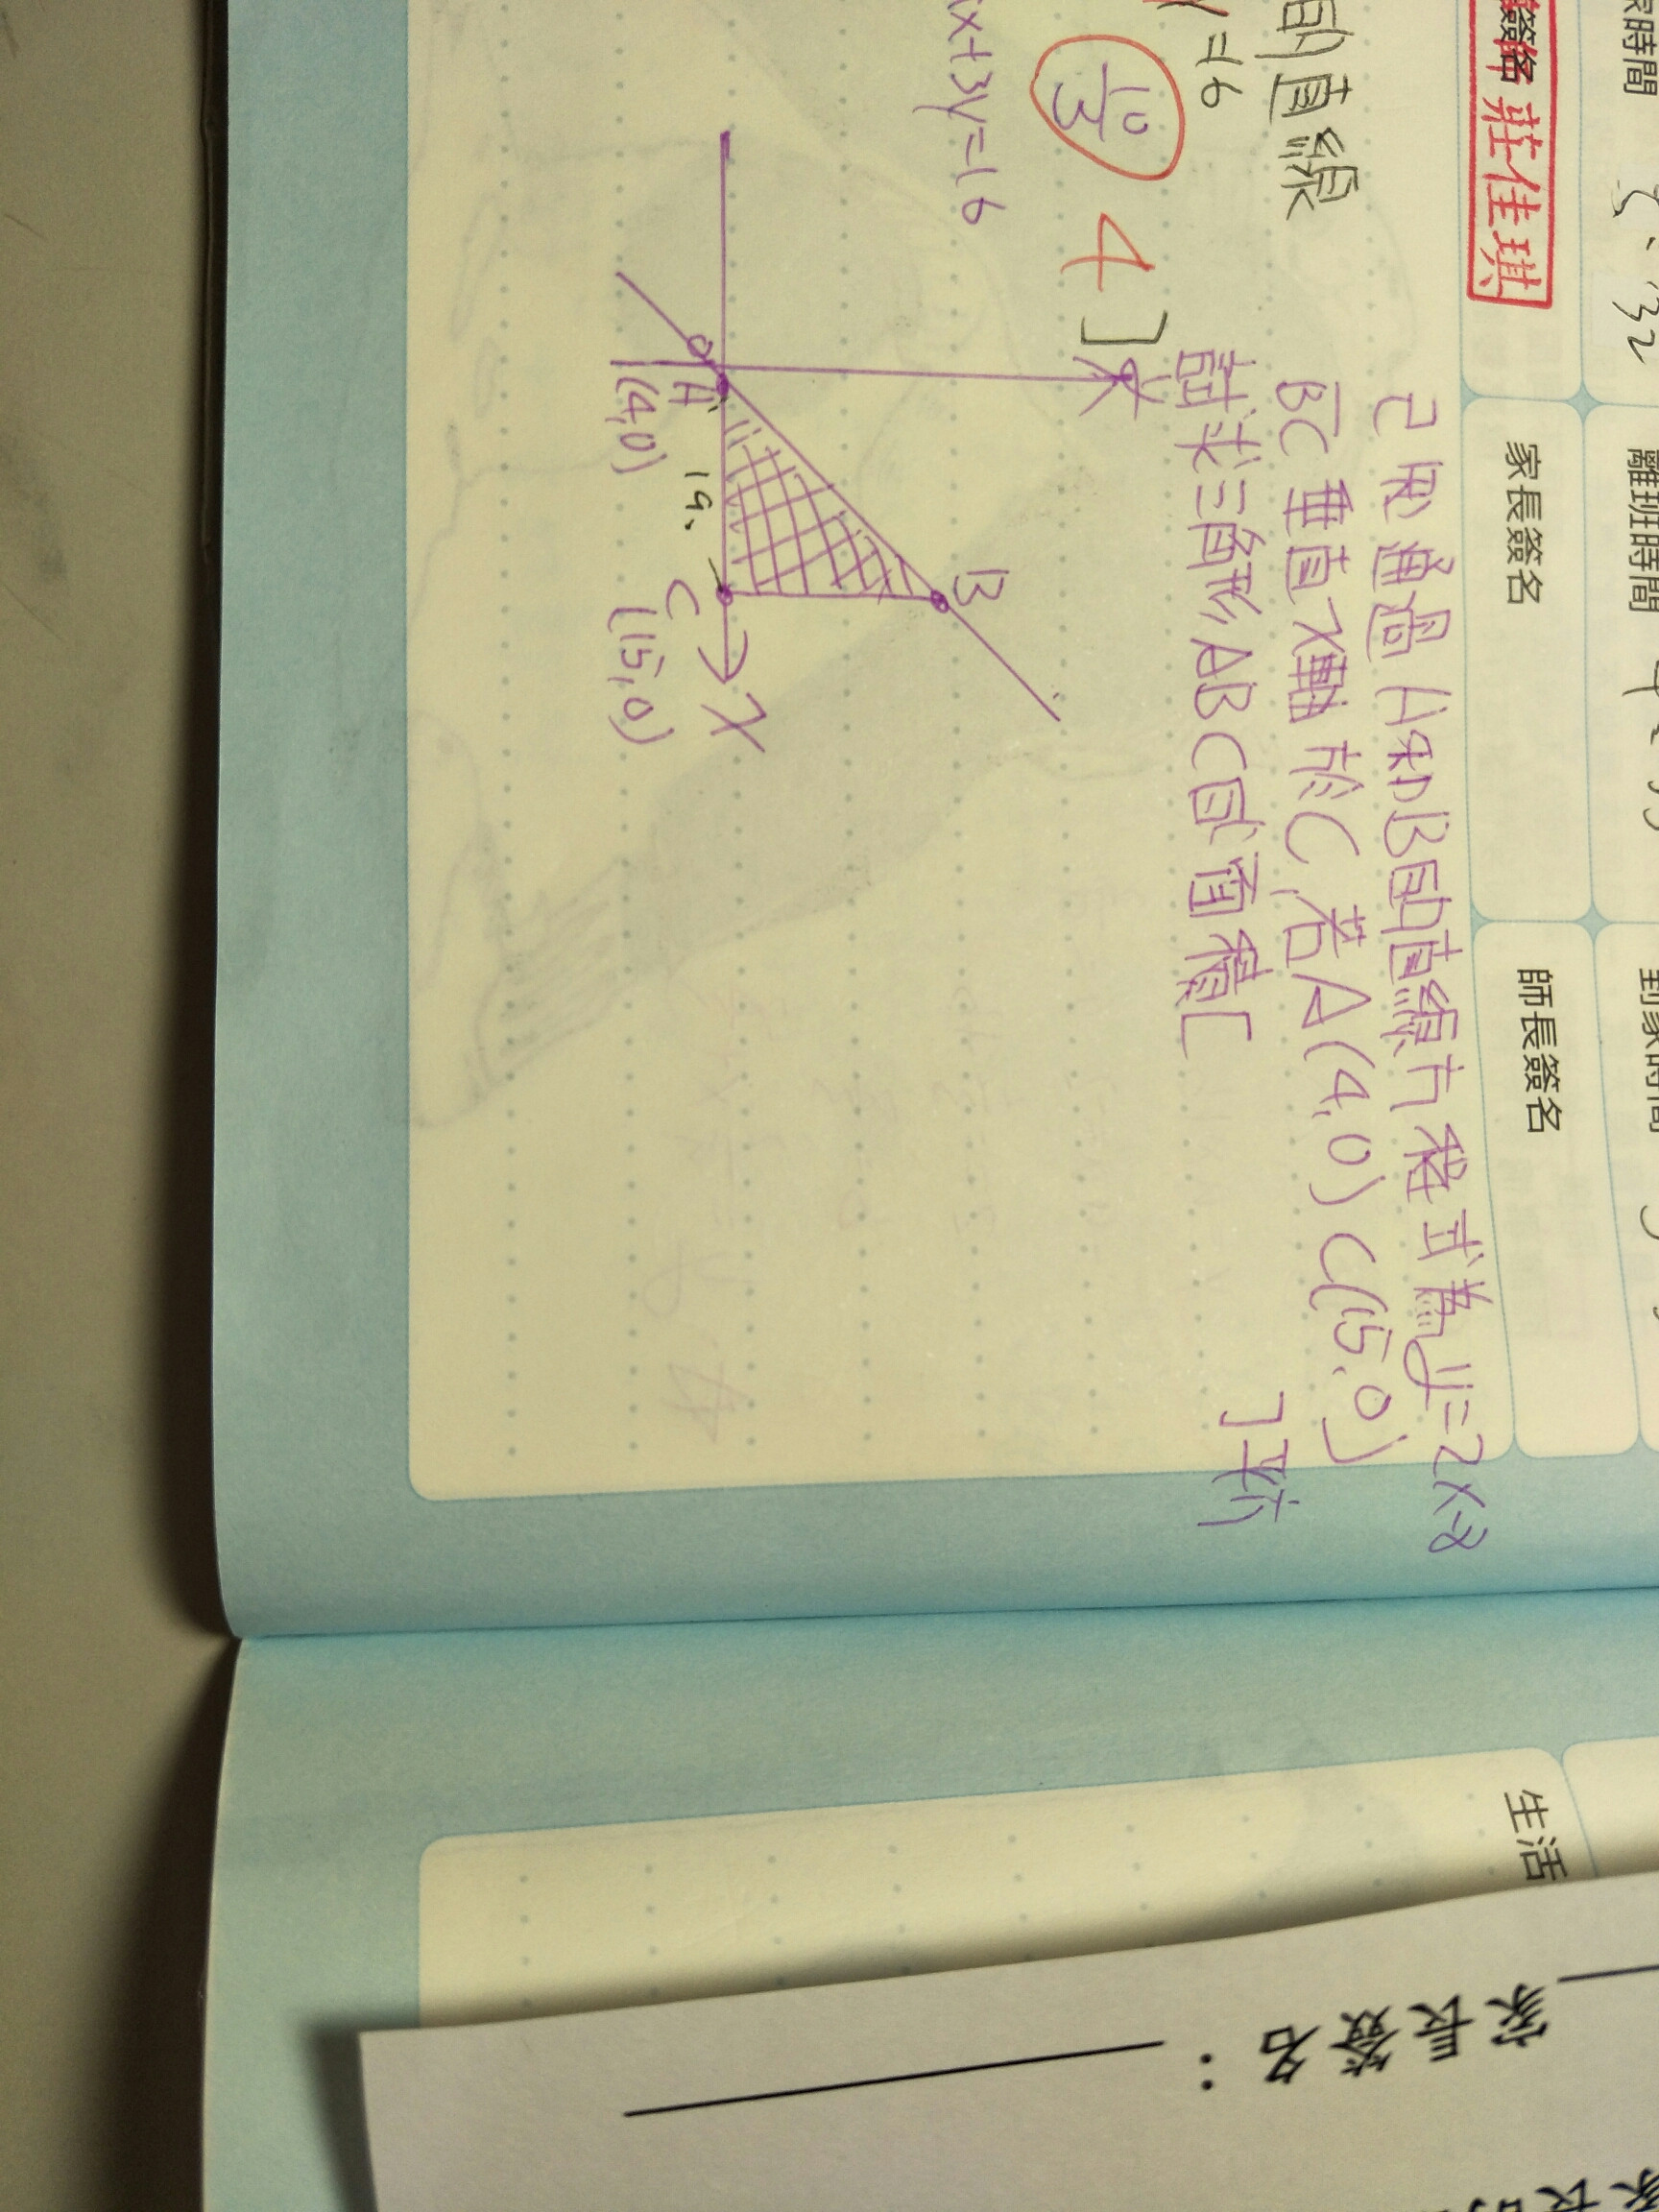 家時間
離班時間
到家時間
5、32
簽名 莊佳琪
家長簽名
師長簽名
的直線
y=16
10/3
4]
x+3y=16
已知通過A和B的直線方程式為y=2x-8
BC垂直X軸於C,若A(4,0)C(15,0)
試求三角形ABC的面積[ ]平方
B
O
A
(4,0)
19.
C
(15,0)
X
生活
家長簽名：